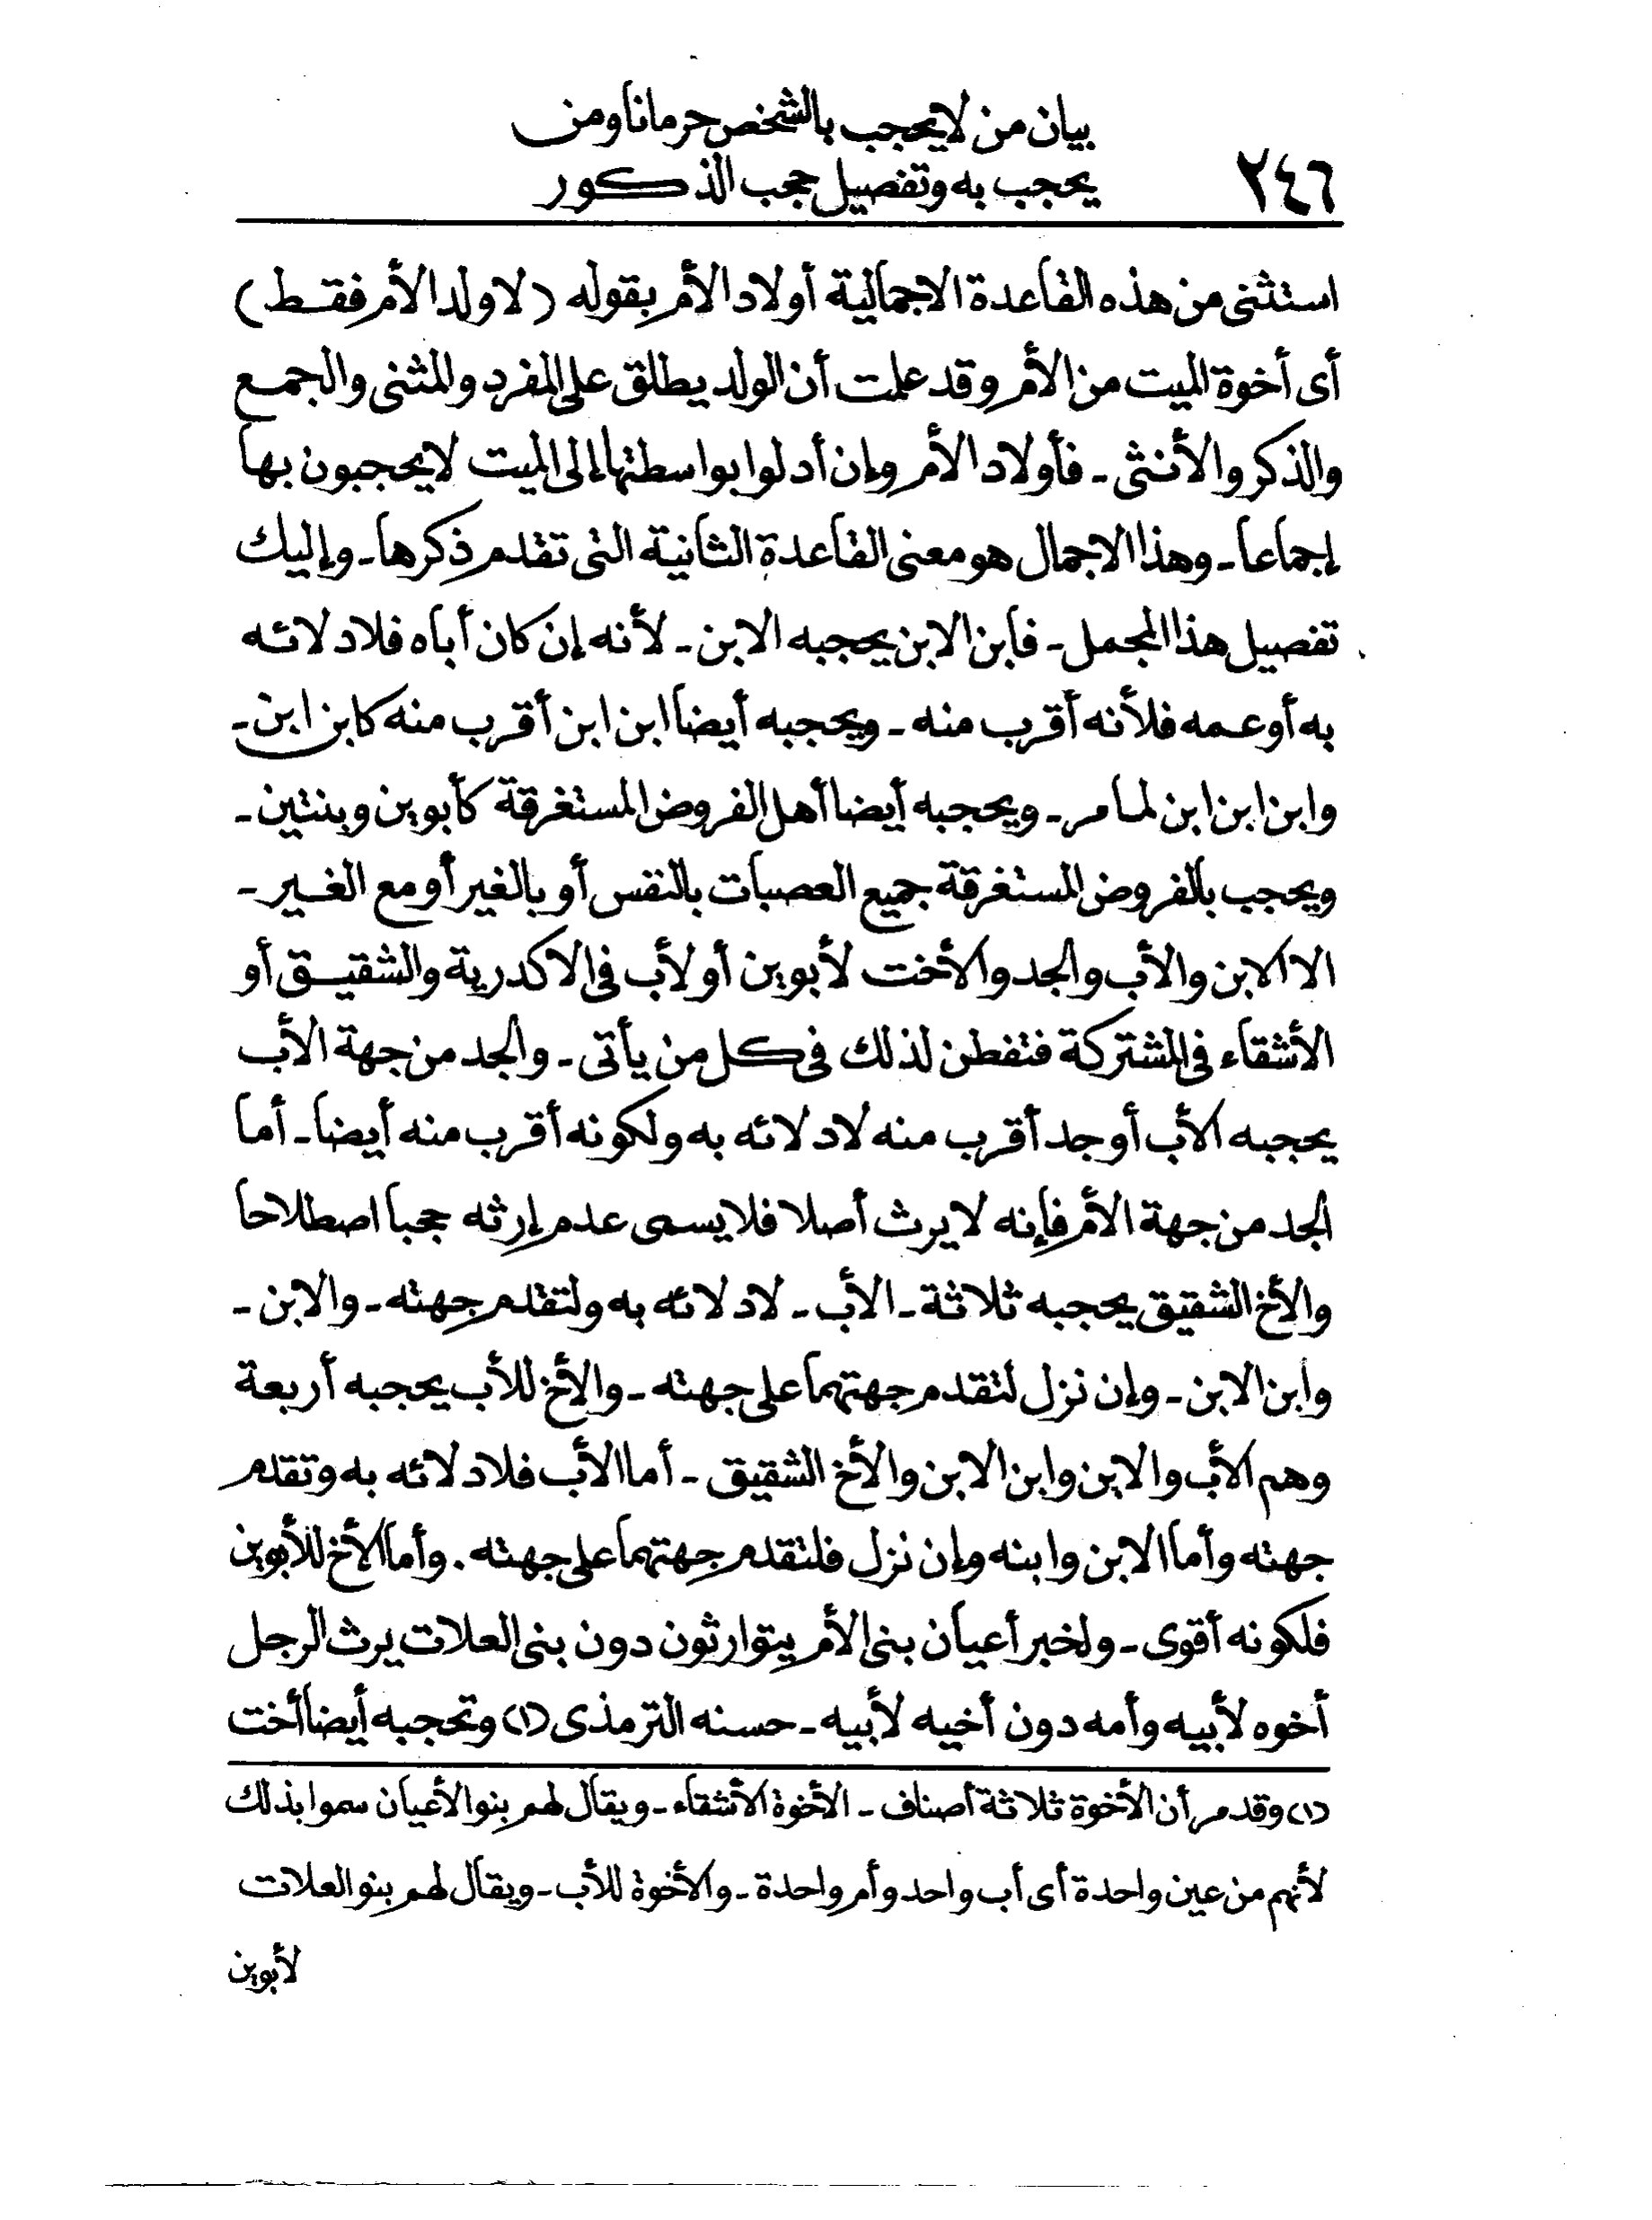 بيان من لا يحجب بالشخص حرمانا ومن
٢٤٦
يحجب به وتفصيل حجب الذكور
استثنى من هذه القاعدة الاجمالية أولاد الأم بقوله (لا ولد الأم فقط)
أى أخوة الميت من الأم وقد علمت أن الولد يطلق على المفرد والمثنى والجمع
والذكر والأنثى - فأولاد الأم وإن أدلوا بواسطتها إلى الميت لا يحجبون بها
إجماعا - وهذا الاجمال هو معنى القاعدة الثانية التى تقدم ذكرها - وإليك
تفصيل هذا المجمل - فابن الابن يحجبه الابن - لأنه إن كان أباه فلادلائه
به أو عمه فلأنه أقرب منه - ويحجبه أيضا ابن ابن أقرب منه كابن ابن -
وابن ابن ابن لما مر - ويحجبه أيضا أهل الفروض المستغرقة كأبوين وبنتين -
ويحجب بالفروض المستغرقة جميع العصبات بالنفس أو بالغير أو مع الغير -
الا الابن والأب والجد والأخت لأبوين أو لأب فى الاكدرية والشقيق أو
الأشقاء فى المشتركة فتفطن لذلك فى كل من يأتى - والجد من جهة الأب
يحجبه الأب أو جد أقرب منه لادلائه به ولكونه أقرب منه أيضا - أما
الجد من جهة الأم فإنه لا يرث أصلا فلا يسمى عدم إرثه حجبا اصطلاحا
والأخ الشقيق يحجبه ثلاثة - الأب - لادلائه به ولتقدم جهته - والابن -
وابن الابن - وإن نزل لتقدم جهتهما على جهته - والأخ للأب يحجبه أربعة
وهم الأب والابن وابن الابن والأخ الشقيق - أما الأب فلادلائه به وتقدم
جهته وأما الابن وابنه وإن نزل فلتقدم جهتهما على جهته . وأما الأخ للأبوين
فلكونه أقوى - ولخبر أعيان بنى الأم يتوارثون دون بنى العلات يرث الرجل
أخوه لأبيه وأمه دون أخيه لأبيه - حسنه الترمذى (١) وتحجبه أيضا أخت
(١) وقد مر أن الأخوة ثلاثة أصناف - الأخوة الأشقاء - ويقال لهم بنو الأعيان سموا بذلك
لأنهم من عين واحدة أى أب واحد وأم واحدة - والأخوة للأب - ويقال لهم بنو العلات
لأبوين